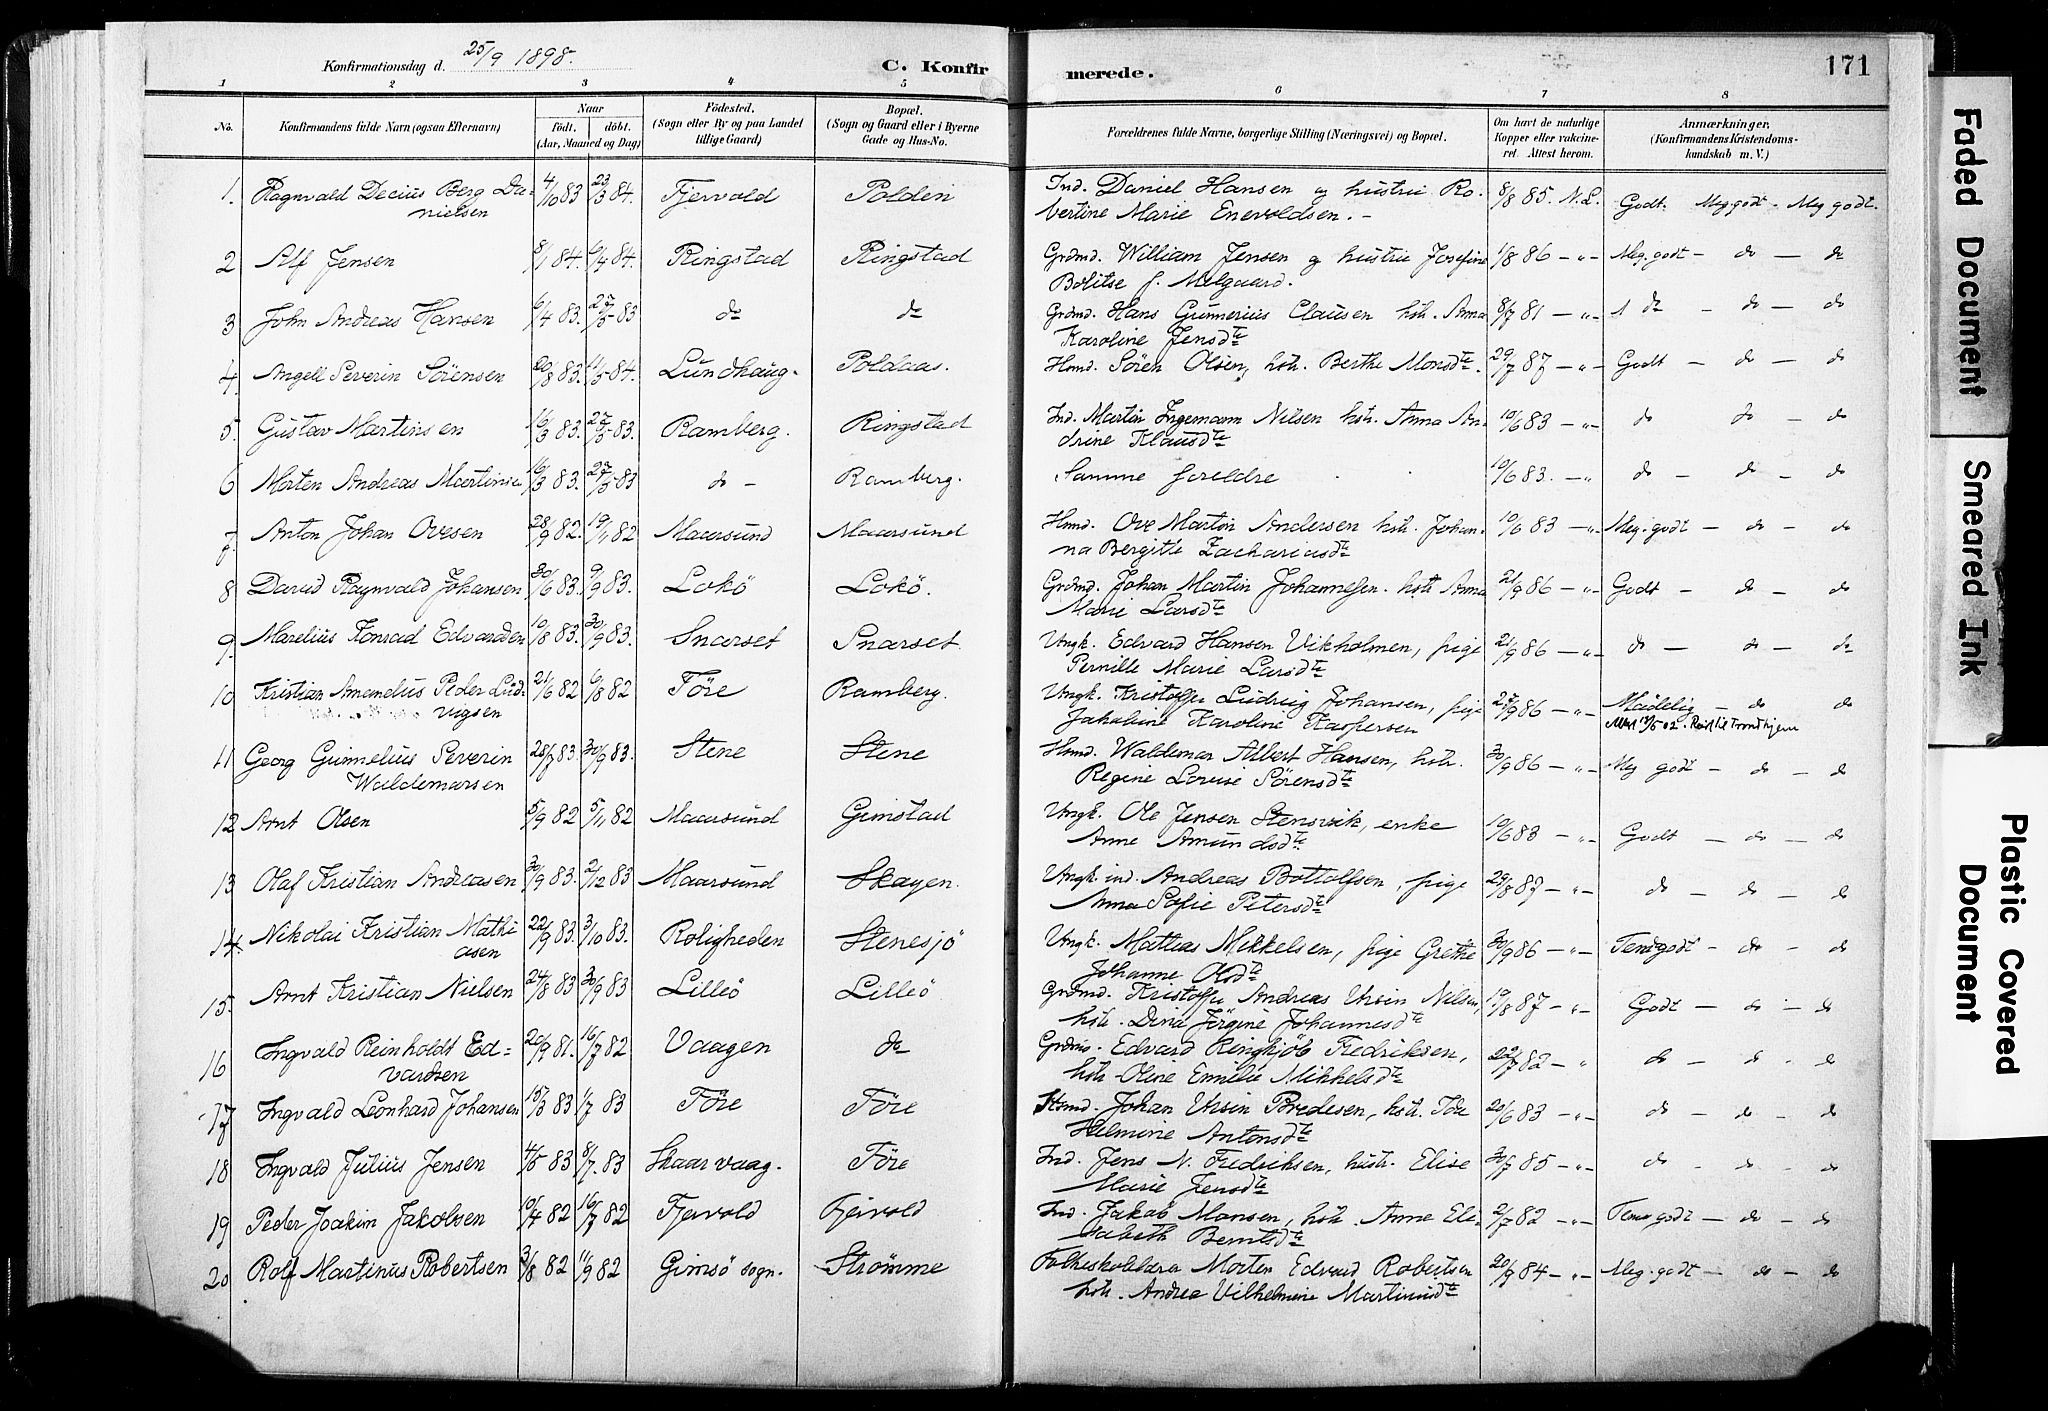 Konfirmationsdag d. 25/9 1898.
C. Konfirmerede.
171
1 2 3 4 5 6 7 8
No.
Konfirmandens fulde Navn (ogsaa Efternavn)
Naar
födt. döbt.
(Aar, Maaned og Dag)
Födested.
(Sogn eller By og paa Landet
tillige Gaard)
Bopæl.
(Sogn og Gaard eller i Byerne
Gade og Hus-No.
Forældrenes fulde Navne, borgerlige Stilling (Næringsvei) og Bopæl.
Om havt de naturlige
Kopper eller vakcine-
ret. Attest herom.
Anmærkninger,
(Konfirmandens Kristendoms-
kundskab m. V.)
1. Ragnvald Decius Berg Da- 4/10 83 23/3 84. Fjervold Polden Ind. Daniel Hansen og hustru Ro- 8/8 85. N.L. Godt. Meg godt - Meg godt.
nielsen
bertine Marie Enevoldsen. -
2 Alf Jensen 8/1 84. 6/4 84. Ringstad Ringstad Grdmd. William Jensen og hustru Josefine 1/8 86 - „ - Meg. godt - do - do
Bolitse f. Melgaard.
3 John Andreas Hansen 6/4 83. 27/5 83 do do Grdmd. Hans Gunnerius Clausen hstr. Anna 8/7 81 - „ - do - do - do
Karoline Jensdte
4. Angell Severin Sörensen 20/8 83. 11/5 84. Lundhaug. Poldaas. Hmd. Sören Olsen, hstr. Berthe Monsdte. 29/7 87 - „ - Godt - do - do
5. Gustav Martinsen 16/3 83. 27/5 83. Ramberg. Ringstad Ind. Martin Ingemann Nilsen hstr. Anna An- 10/6 83 - „ - do do - do
drine Klausdte
6 Morten Andreas Martinsen 16/3 83. 27/5 83 do - Ramberg. Samme foreldre 10/6 83. - „ do - do - do
7. Anton Johan Ovesen 28/9 82. 19/11 82 Maarsund Maarsund Hmd. Ove Martin Andersen hstr. Johan- 10/6 83 - „ - Meg. godt - do - do
na Bergitte Zachariasdte
8 David Ragnvald Johansen 30/6 83. 9/9 83. Lokö Lokö. Grdmd. Johan Martin Johannessen. hstr Anna 21/9 86 - „ - Godt - do - do
Marie Larsdte
9. Marelius Konrad Edvardsen 10/8 83. 30/9 83. Snarset Snarset Ungk. Edvard Hansen Vikholmen, pige 21/9 86 - „ - do - do - do
Pernille Marie Larsdte
10 Kristian Amenelius Peder Lud- 21/6 82 6/8 82 Töre Ramberg. Ungk. Kristoffer Ludvig Johansen, pige 27/9 86 - „ - Maadelig - do do
vigsen
Jakobine Karoline Kaspersen
Reist til Trondhjem
11 Georg Gunnelius Severin 28/7 83. 30/9 83. Stene Stene Hmd. Waldemar Albert Hansen, hstr. 30/9 86 - „ - Meg godt - do - do
Waldemarsen
Regine Lovise Sörensdte
12 Arnt Olsen 5/9 82 5/11 82 Maarsund Gimstad Ungk. Ole Jensen Stensvik, enke 10/6 83 - „ Godt - do - do
Anne Amundsdte
13 Olaf Kristian Andreasen 30/9 83. 2/12 83 Maarsund Skagen. Ungk. ind. Andreas Bottolfsen, pige 29/8 87 - „ - do - do - do
Anna Sofie Petersdte
14. Nikolai Kristian Mathi 22/9 83. 3/10 83. Roligheden Stenesjö Ungk. Mathias Mikkelsen, pige Grethe 30/9 86 - „ - Temgodt - do - do
asen
Johanne Olsdte
15. Arnt Kristian Nielsen 24/8 83 30/9 83 Lilleö Lilleö Grdmd. Kristoffer Andreas Ursin Nilsen, 19/8 87 - „ - Godt - do - do
hstr. Dina Jörgine Johannesdte
16 Ingvald Reinholdt Ed- 20/9 81. 16/7 82 Vaagen do Grdmd. Edvard Ringkjöb Fredriksen, 22/7 82 - „ do - do - do
vardsen
hstr. Oline Emelie Mikkelsdte
17 Ingvald Leonhard Johansen 15/3 83 1/7 83 Töre Töre Hmd. Johan Ursin Bredesen, hstr. 20/6 83 - „ - do - do - do
Helmine Antonsdte
18 Ingvald Julius Jensen 4/5 83 8/7 83 Skaarvaag. Töre Ind. Jens N. Fredriksen, hustr. Elise 30/7 85 - „ - do - do - do
Marie Jensdte
19 Peder Joakim Jakobsen 10/4 82 16/7 82 Fjervold Fjervold Ind. Jakob Monsen, hstr. Anne Eli- 2/7 82 - „ - Temgodt - do - do
sabeth Berntsdte
20 Rolf Martinus Robertsen 3/8 82 11/9 82 Gimsö sogn. Strömme Folkeskolelærer Morten Edvard Robertsen 20/9 84 - „ - Meg. godt - do - do
hstr. Andrea Vilhelmine Martinusdte
Faded Document
Smeared Ink
Plastic Covered
Document